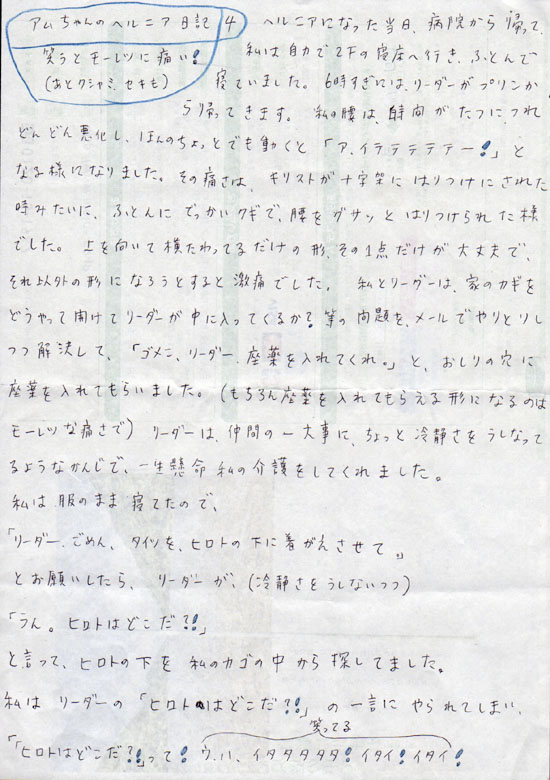 アムちゃんのヘルニア日記 4
笑うとモーレツに痛い!
(あとクシャミ、セキも)
ヘルニアになった当日、病院から帰って、
私は自力で2Fの寝床へ行き、ふとんで
寝ていました。 6時すぎには、リーダーがプリンか
ら帰ってきます。 私の腰は時間がたつにつれ
どんどん悪化し、ほんのちょっとでも動くと「ア、イテテテテテー!」と
なる様になりました。その痛さは、キリストが十字架にはりつけにされた
時みたいに、ふとんにでっかいクギで、腰をグサッとはりつけられた様
でした。 上を向いて横たわってるだけの形、その1点だけが大丈夫で、
それ以外の形になろうとすると激痛でした。 私とリーダーは、家のカギを
どうやって開けてリーダーが中に入ってくるか?等の問題を、メールでやりとりし
つつ解決して、「ゴメン、リーダー、座薬を入れてくれ。」と、おしりの穴に
座薬を入れてもらいました。(もちろん座薬を入れてもらえる形になるのは
モーレツな痛さで) リーダーは、仲間の一大事に、ちょっと冷静さをうしなって
るようなかんじで、一生懸命私の介護をしてくれました。
私は服のまま寝てたので、
「リーダー、ごめん、タイツを、ヒロトの下に着がえさせて。」
とお願いしたら、リーダーが、(冷静さをうしないつつ)
「うん。ヒロトはどこだ?!」
と言って、ヒロトの下を私のカゴの中から探してました。
私はリーダーの「ヒロトはどこだ?!」の一言にやられてしまい、
笑ってる
「「ヒロトはどこだ?!」って! ウ、ハ、イタタタタタ!イタイ!イタイ!